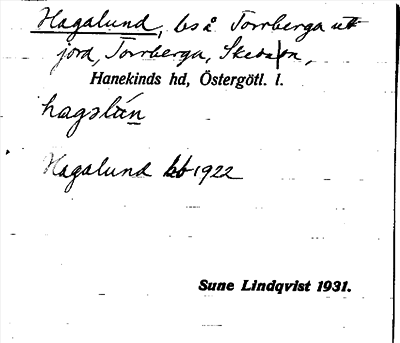 Hagalund, bs å Torrberga ut
jord, Torrberga, Skeda sn,
Hanekinds hd, Östergötl. l.
hagalún
Hagalund bb 1922
Sune Lindqvist 1931.